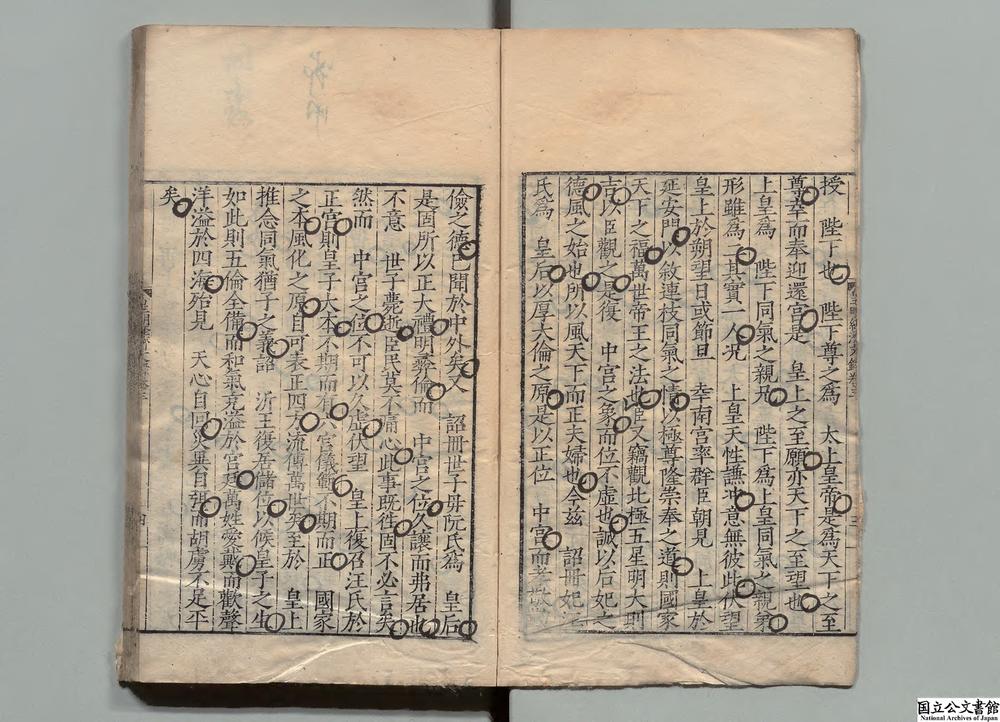 授　陛下也　陛下尊之為　太上皇帝是為天下之至
尊辜而奉迎還宮是　皇上之至願亦天下之至望也
上皇為　陛下同氣之親兄　陛下為上皇同氣之親弟
形雖為二其實一人况　上皇天性謙冲意無彼此伏望
皇上於朔望日或節旦　幸南宮率群臣朝見　上皇於
延安門以敘連枝同氣之情以極尊隆崇奉之道則國家
天下之福萬世帝王之法也臣又竊觀北極五星明大則
吉以臣觀之是復　中宮之象而位不虛也誠以后妃之
德風之始也所以風天下而正夫婦也今茲　詔冊妃汪
氏為　皇后以厚大倫之原是以正位　中宮而
儉之德已聞於中外矣又　詔冊世子毋阮氏為　皇后
是固所以正大禮明彝倫而　中宮之位久讓而弗居也
不意　世子薨逝臣民莫不痛心此事既往固不必言矣
然而　中宮之位不可以久虛伏望　皇上復召汪氏於
正宮則皇子大本不期而有六宮儀範不期而正　國家
之本風化之原自可表正四方流傳萬世矣至於　皇上
推念同氣猶子之義詔　沂王復居儲位以候皇子之生
如此則五倫全備而和氣充溢於宮廷萬姓愛戴而歡聲
洋溢於四海殆見　天心自回災異自弭而胡虜不足平
矣
国立公文書館
National Archives of Japan